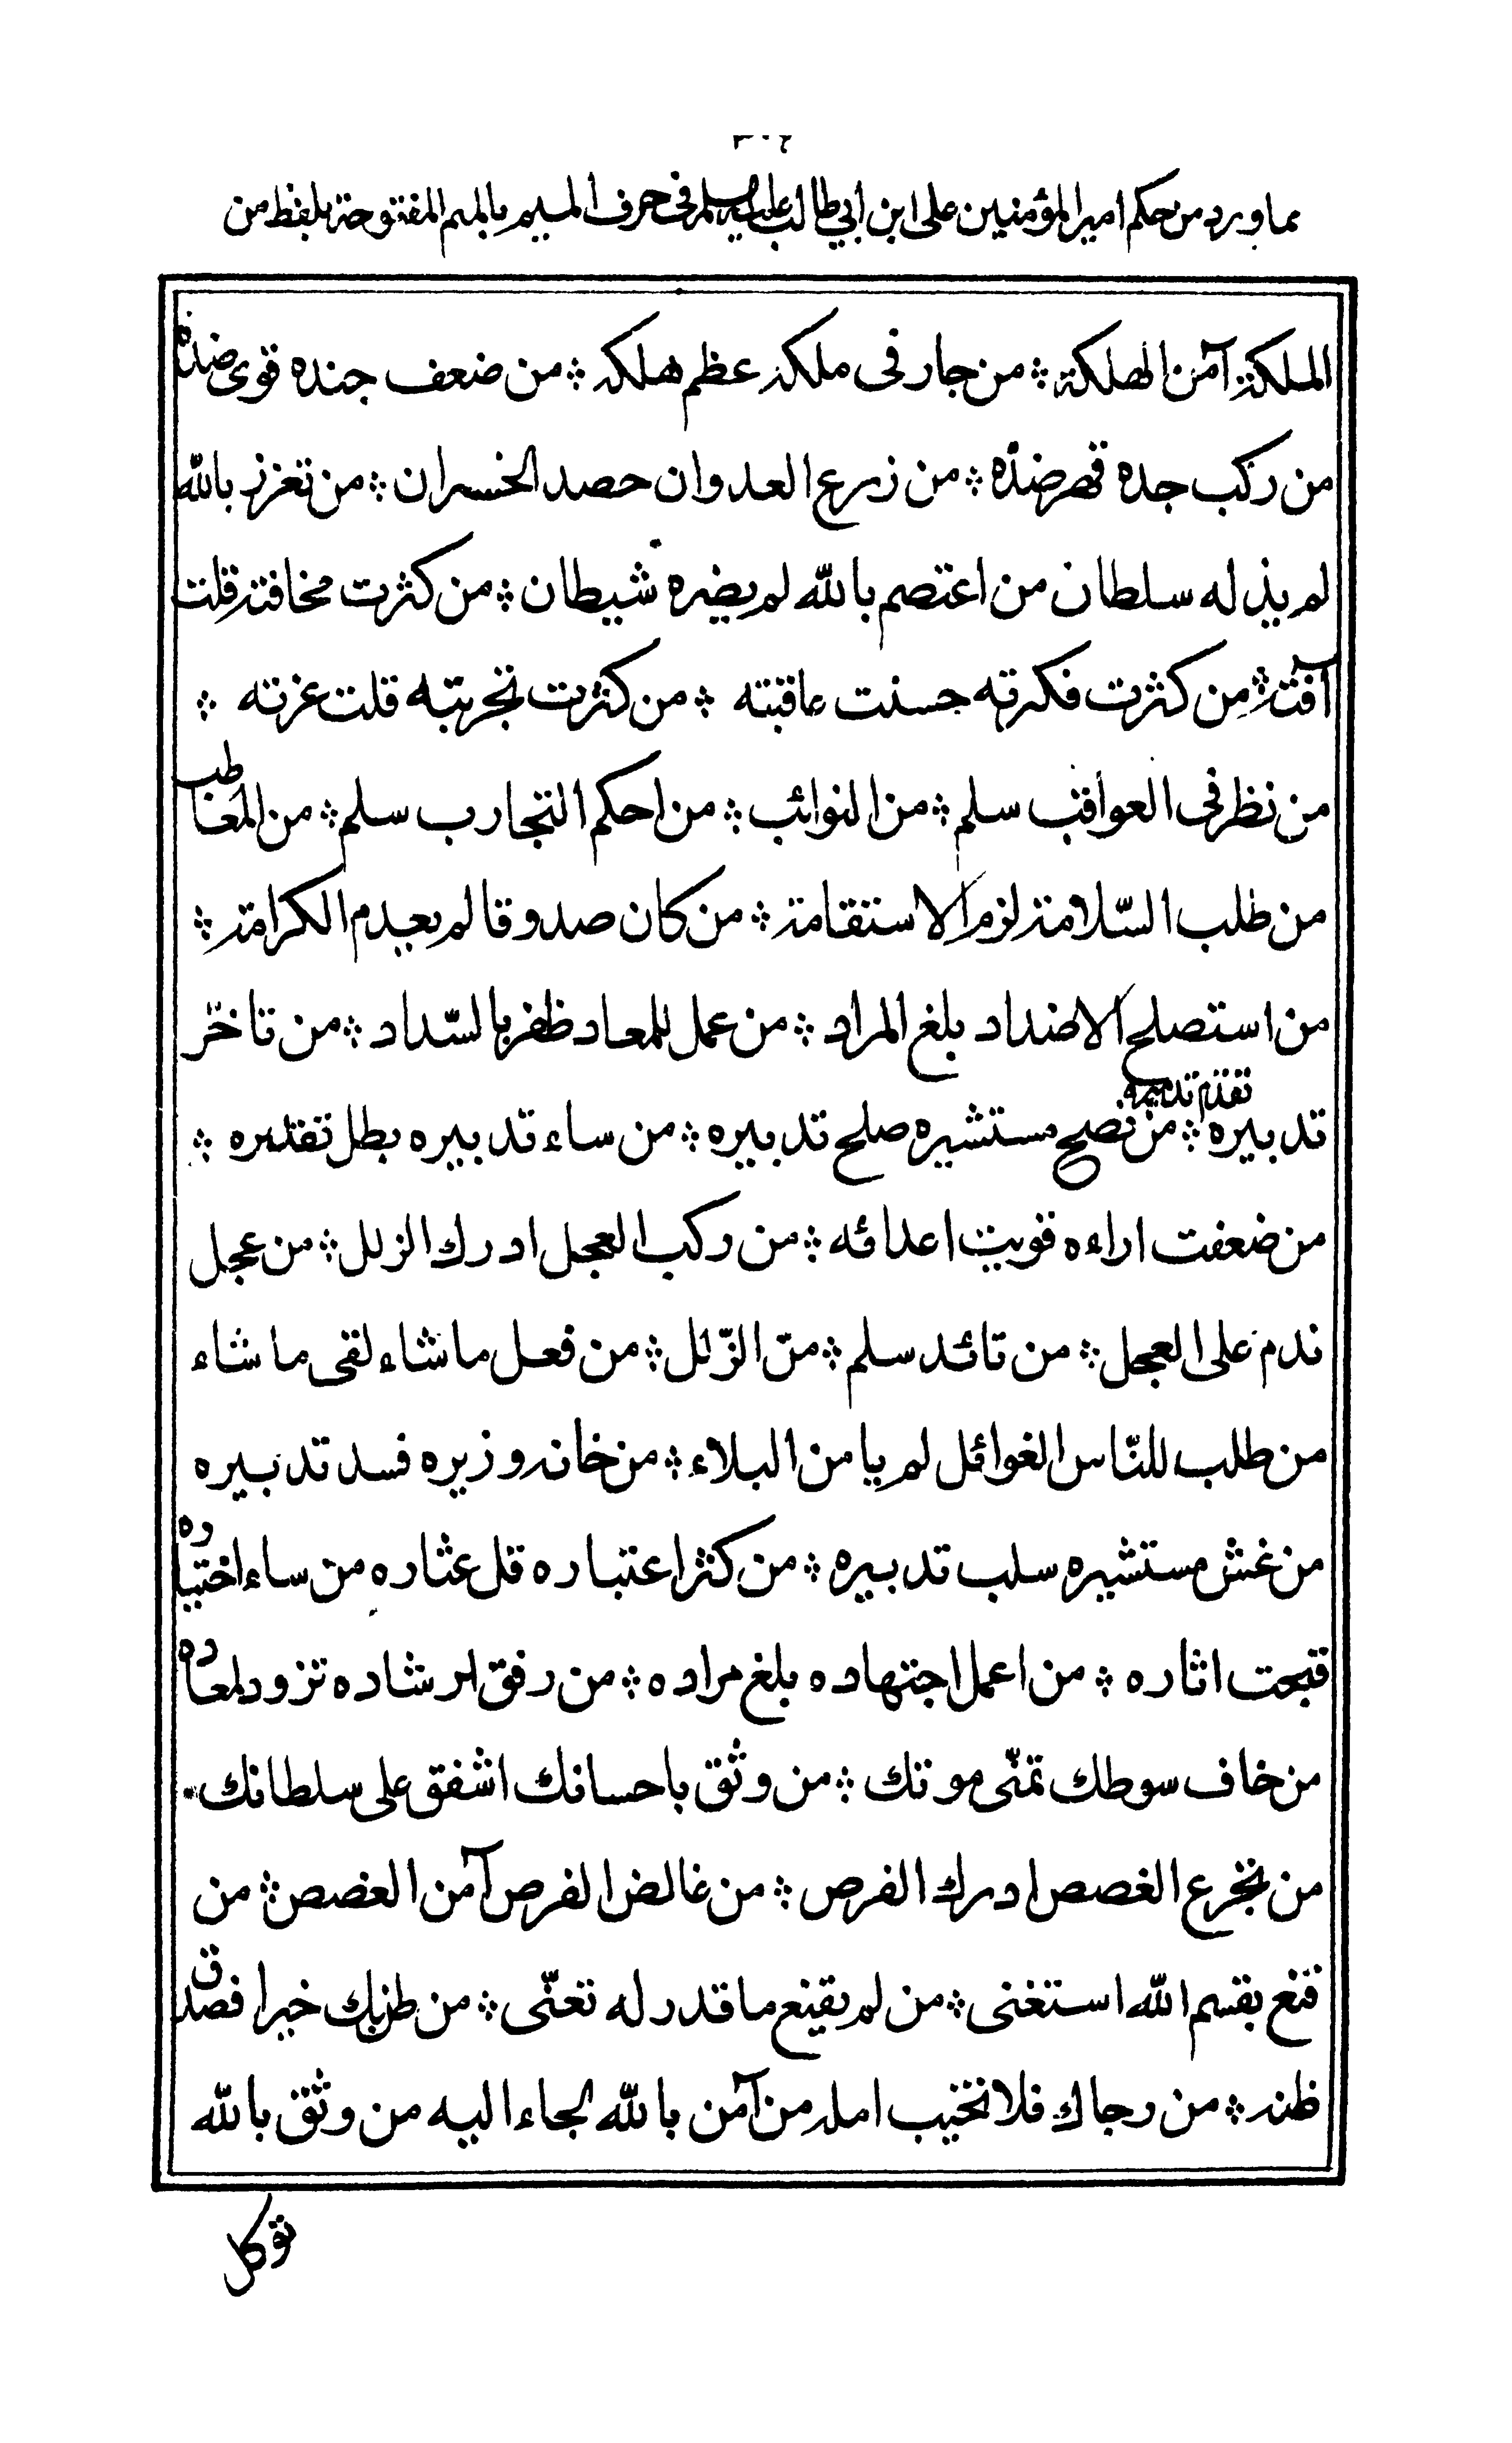 مما ورد من حكم امير المؤمنين على ابن ابي طالب عليه السلم في حرف الميم بالميم المفتوحة بلفظ من
الملكة آمن الهلكة ؞ من جار فى ملكه عظم هلكه ؞ من ضعف جنده قوى ضدّه
من ركب جده قهر ضدّه ؞ من زرع العدوان حصد الخسران ؞ من تعزز بالله
لم يذله سلطان من اعتصم بالله لم يضره شيطان ؞ من كثرت مخافته قلت
آفته ؞ من كثرت فكرته حسنت عاقبته ؞ من كثرت تجربته قلت غرته ؞
من نظر فى العواقب سلم ؞ من النوائب ؞ من احكم التجارب سلم ؞ من المعاطب
من طلب السّلامة لزم الاستقامة ؞ من كان صدوقا لم يعدم الكرامة ؞
من استصلح الاضداد بلغ المراد ؞ من عمل للمعاد ظفر بالسّداد ؞ من تاخّر
تدبيره تقدّم تدميره ؞ من نصح مستشيره صلح تدبيره ؞ من ساء تدبيره بطل تقديره ؞
من ضعفت اراءه قويت اعدائه ؞ من ركب العجل ادرك الزلل ؞ من عجل
ندم على العجل ؞ من تائد سلم ؞ من الزّلل ؞ من فعل ما شاء لقى ما شاء
من طلب للنّاس الغوائل لم يامن البلاء ؞ من خانه وزيره فسد تدبيره
من غش مستشيره سلب تدبيره ؞ من كثر اعتباره قل عثاره من ساء اختياره
قبحت اثاره ؞ من اعمل اجتهاده بلغ مراده ؞ من رفق لرشاده تزود لمعاده
من خاف سوطك تمنّى موتك ؞ من وثق باحسانك اشفق على سلطانك
من تجرع الغصص ادرك الفرص ؞ من غالض الفرص آمن الغصص ؞ من
قنع بقسم الله استغنى ؞ من لم يقنع ما قدر له تعنّى ؞ من ظن بك خيرا فصدق
ظنه ؞ من رجاك فلا تخيب امله من آمن بالله لجاء اليه من وثق بالله
توكل